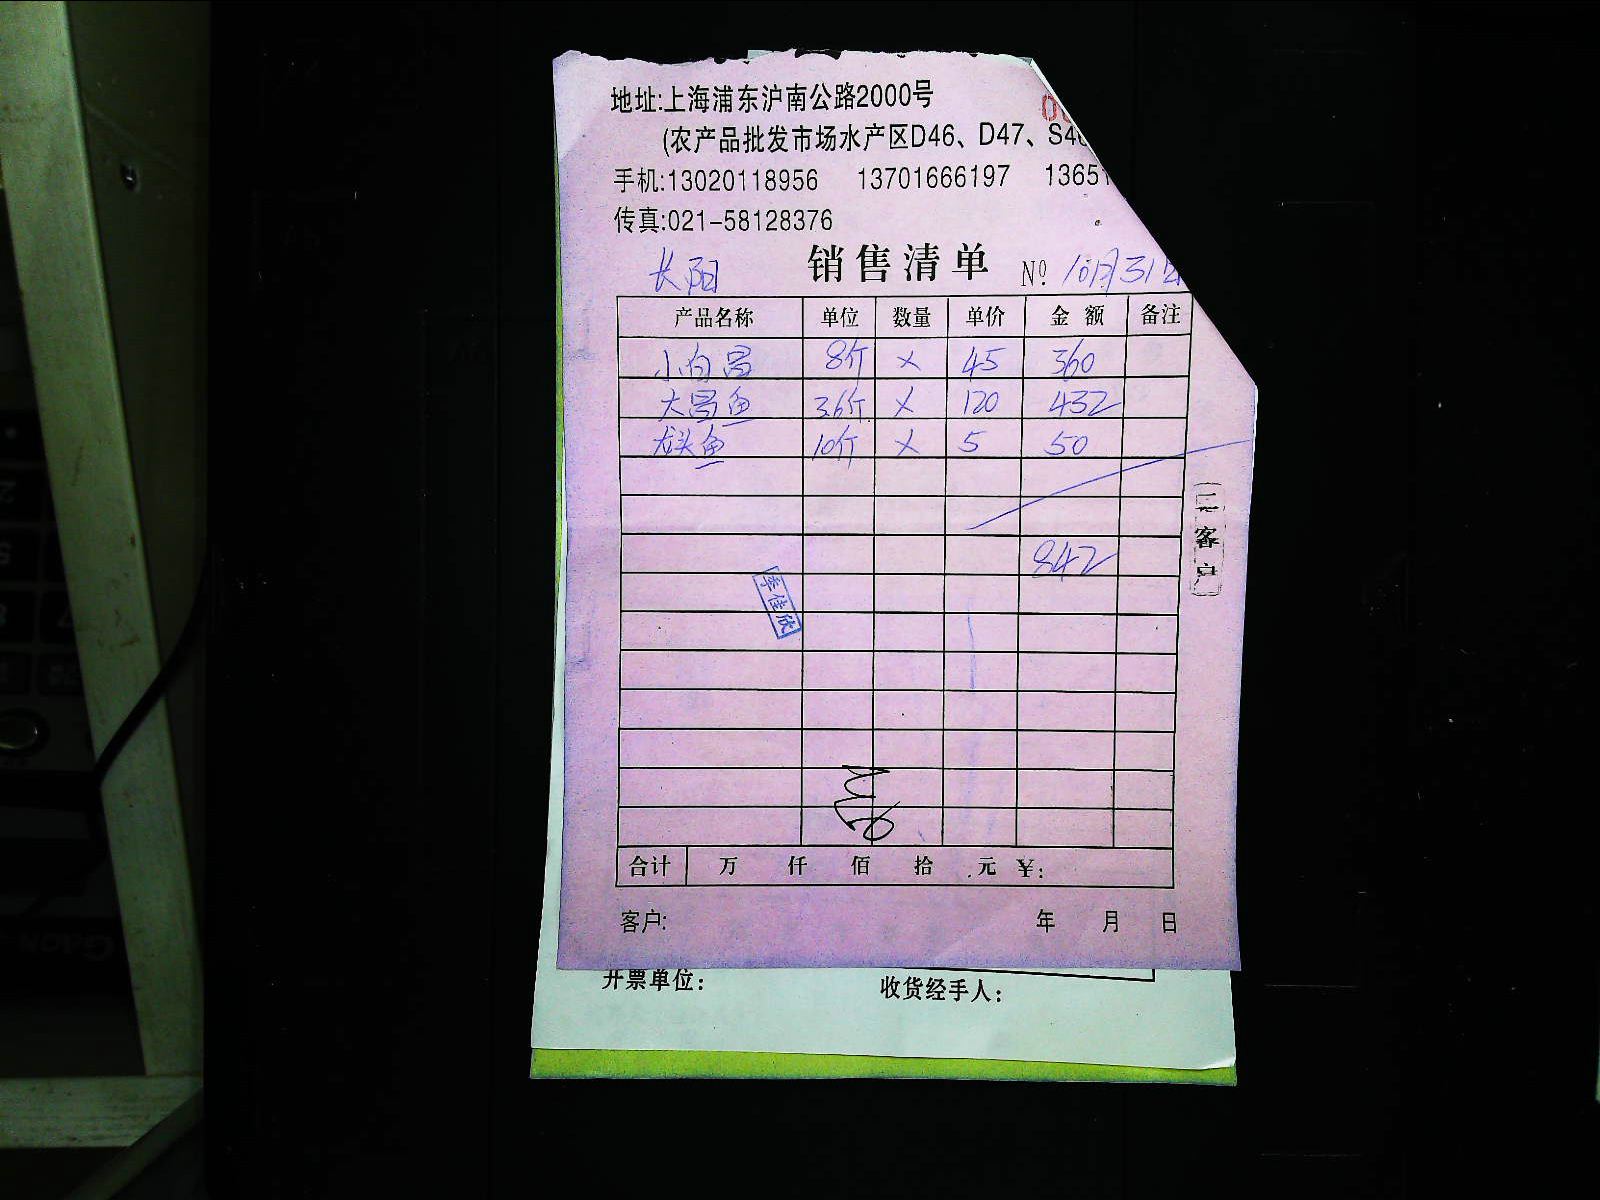 地址:上海浦东沪南公路2000号
(农产品批发市场水产区D46、D47、S46
手机:13020118956 13701666197 13651
传真:021-58128376
长阳 销售清单 Nº 10月31日
产品名称 单位 数量 单价 金额 备注
小白昌 8斤 × 45 360
大昌鱼 3.6斤 × 120 432
龙头鱼 10斤 × 5 50
842
二客户
李佳欣
合计 万 仟 佰 拾 元 ¥:
客户: 年 月 日
开票单位: 收货经手人: